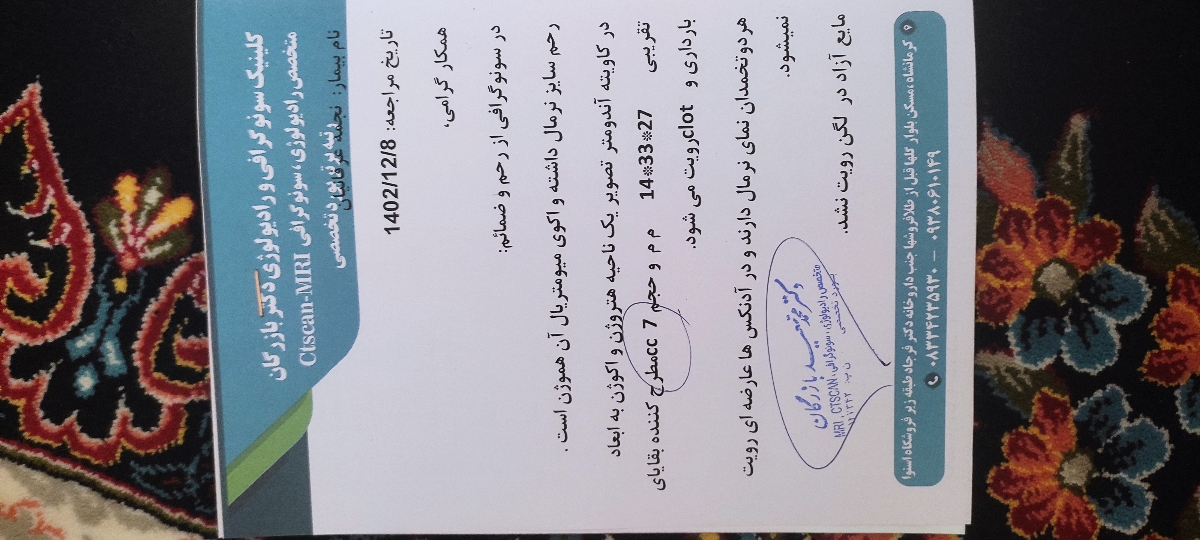 کلینیک سونوگرافی و رادیولوژی دکتر بازرگان
متخصص رادیولوژی، سونوگرافی Ctscan-MRI
رتبه برتر بورد تخصصی
نام بیمار: نجمه عرفانیان
تاریخ مراجعه: 1402/12/8
همکار گرامی،
در سونوگرافی از رحم و ضمائم:
رحم سایز نرمال داشته و اکوی میومتریال آن هموژن است .
در کاویته آندومتر تصویر یک ناحیه هتروژن و اکوژن به ابعاد
تقریبی 27*33*14 م م و حجم 7 cc مطرح کننده بقایای
بارداری و clot رویت می شود.
هردوتخمدان نمای نرمال دارند و در آدنکس ها عارضه ای رویت
نمیشود.
مایع آزاد در لگن رویت نشد.
دکتر محمد سعید بازرگان
متخصص رادیولوژی، سونوگرافی
MRI, CTSCAN
بورد تخصصی
کرمانشاه، مسکن بلوار گلها قبل از طلافروشها جنب داروخانه دکتر فرجاد طبقه زیر فروشگاه اسنوا
۰۸۳۳۴۲۳۵۹۳۰ – ۰۹۳۸۰۶۱۰۱۴۹